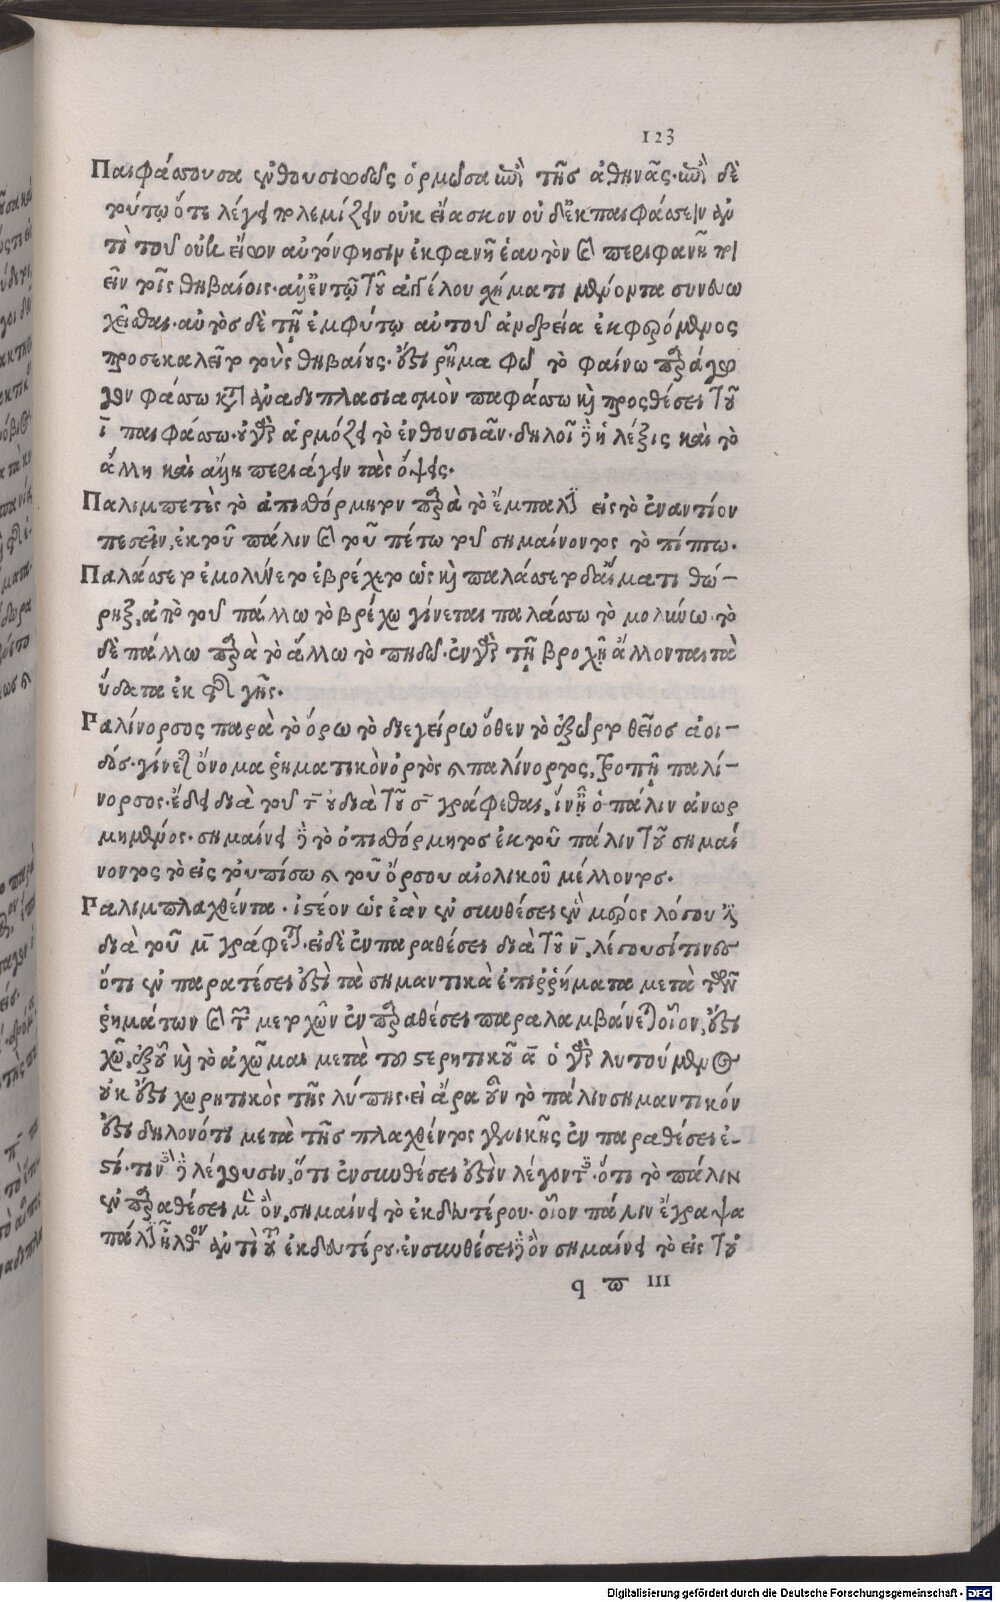 123
Παιφάσσουσα ἐνθουσιωδῶς ὁρμῶσα ἐπὶ τῆς ἀθηνᾶς. ἐπὶ δὲ
τούτῳ ὅτι λέγει πολεμίζειν οὐκ εἴασκον οὐδ' ἐκπαιφάσσειν ἀν
τὶ τοῦ οὐκ εἴων αὐτόν φησιν ἐκφανῆ ἑαυτὸν καὶ περιφανῆ ποι
εῖν τοῖς θηβαίοις. ἀλλ' ἐν τῷ τοῦ ἀγγέλου χήματι μένοντα συνευω
χεῖσθαι. αὐτὸς δὲ τῇ ἐμφύτῳ αὐτοῦ ἀνδρεία ἐκφερόμενος
προσεκαλεῖτο τοὺς θηβαίους. ἔστι ῥῆμα φῶ τὸ φαίνω παράγω
γον φάσσω κατὰ ἀναδιπλασιασμὸν παφάσσω καὶ προσθέσει τοῦ
ῑ παιφάσσω. οὕτως ἁρμόζει τὸ ἐνθουσιᾶν. δηλοῖ δὲ ἡ λέξις καὶ τὸ
ἄλλη καὶ ἄλλη περιάγειν τὰς ὄψεις.
Παλιμπετὲς τὸ ὀπισθόρμητον παρὰ τὸ ἔμπαλιν εἰς τὸ ἐναντίον
πεσεῖν, ἐκ τοῦ πάλιν καὶ τοῦ πέτω τοῦ σημαίνοντος τὸ πίπτω.
Παλάσσετο ἐμολύνετο ἐβρέχετο ὡς καὶ παλάσσετο δ' αἵματι θώ-
ρηξ, ἀπὸ τοῦ πάλλω τὸ βρέχω γίνεται παλάσσω τὸ μολύνω. τὸ
δὲ πάλλω παρὰ τὸ ἅλλω τὸ πηδῶ. ἐν γὰρ τῇ βροχῇ ἅλλονται τὰ
ὕδατα ἐκ τῆς γῆς.
Παλίνορσος παρὰ τὸ ὄρω τὸ διεγείρω ὅθεν τὸ ἐξῶρτο θεῖος ἀοι-
δός. γίνεται ὄνομα ῥηματικὸν ὀρτὸς καὶ παλίνορτος, τροπῇ παλί-
νορσος. ἔδει διὰ τοῦ τ̄ οὐ διὰ τοῦ σ̄ γράφεσθαι, ἵν' ᾖ ὁ πάλιν ἀνωρ
μημένος. σημαίνει δὲ τὸ ὀπισθόρμητος ἐκ τοῦ πάλιν τοῦ σημαί
νοντος τὸ εἰς τοὐπίσω καὶ τοῦ ὄρσου αἰολικοῦ μέλλοντος.
Παλιμπλαχθέντα. ἰστέον ὡς ἐὰν ἐν συνθέσει ἓν μέρος λόγου
διὰ τοῦ μ̄ γράφεται. εἰ δὲ ἐν παραθέσει διὰ τοῦ ν̄, λέγουσί τινες
ὅτι ἐν παρατέσει ἐστὶ τὰ σημαντικὰ ἐπιρρήματα μετὰ τῶν
ῥημάτων καὶ τῶν μετοχῶν ἐν παραθέσει παραλαμβάνεται οἷον, ἔστι
χῶ, ἐξ οὗ καὶ τὸ ἀχῶμαι μετὰ τοῦ στερητικοῦ ᾱ ὁ γὰρ λυπούμενος
οὐκ ἔστι χωρητικὸς τῆς λύπης. εἰ ἄρα οὖν τὸ πάλιν σημαντικόν
ἐστι δηλονότι μετὰ τῆς πλαχθέντος γενικῆς ἐν παραθέσει ἐ-
στί. τινὲς δὲ λέγουσιν, ὅτι ἐν συνθέσει ἐστὶν λέγοντες. ὅτι τὸ πάλιν
ἐν παραθέσει μὲν ὂν, σημαίνει τὸ ἐκ δευτέρου. οἷον πάλιν ἔγραψα
πάλιν ἦλθον ἀντὶ τοῦ ἐκ δευτέρου. ἐν συνθέσει δὲ ὂν σημαίνει τὸ εἰς τοὐ
q π III
Digitalisierung gefördert durch die Deutsche Forschungsgemeinschaft - DFG